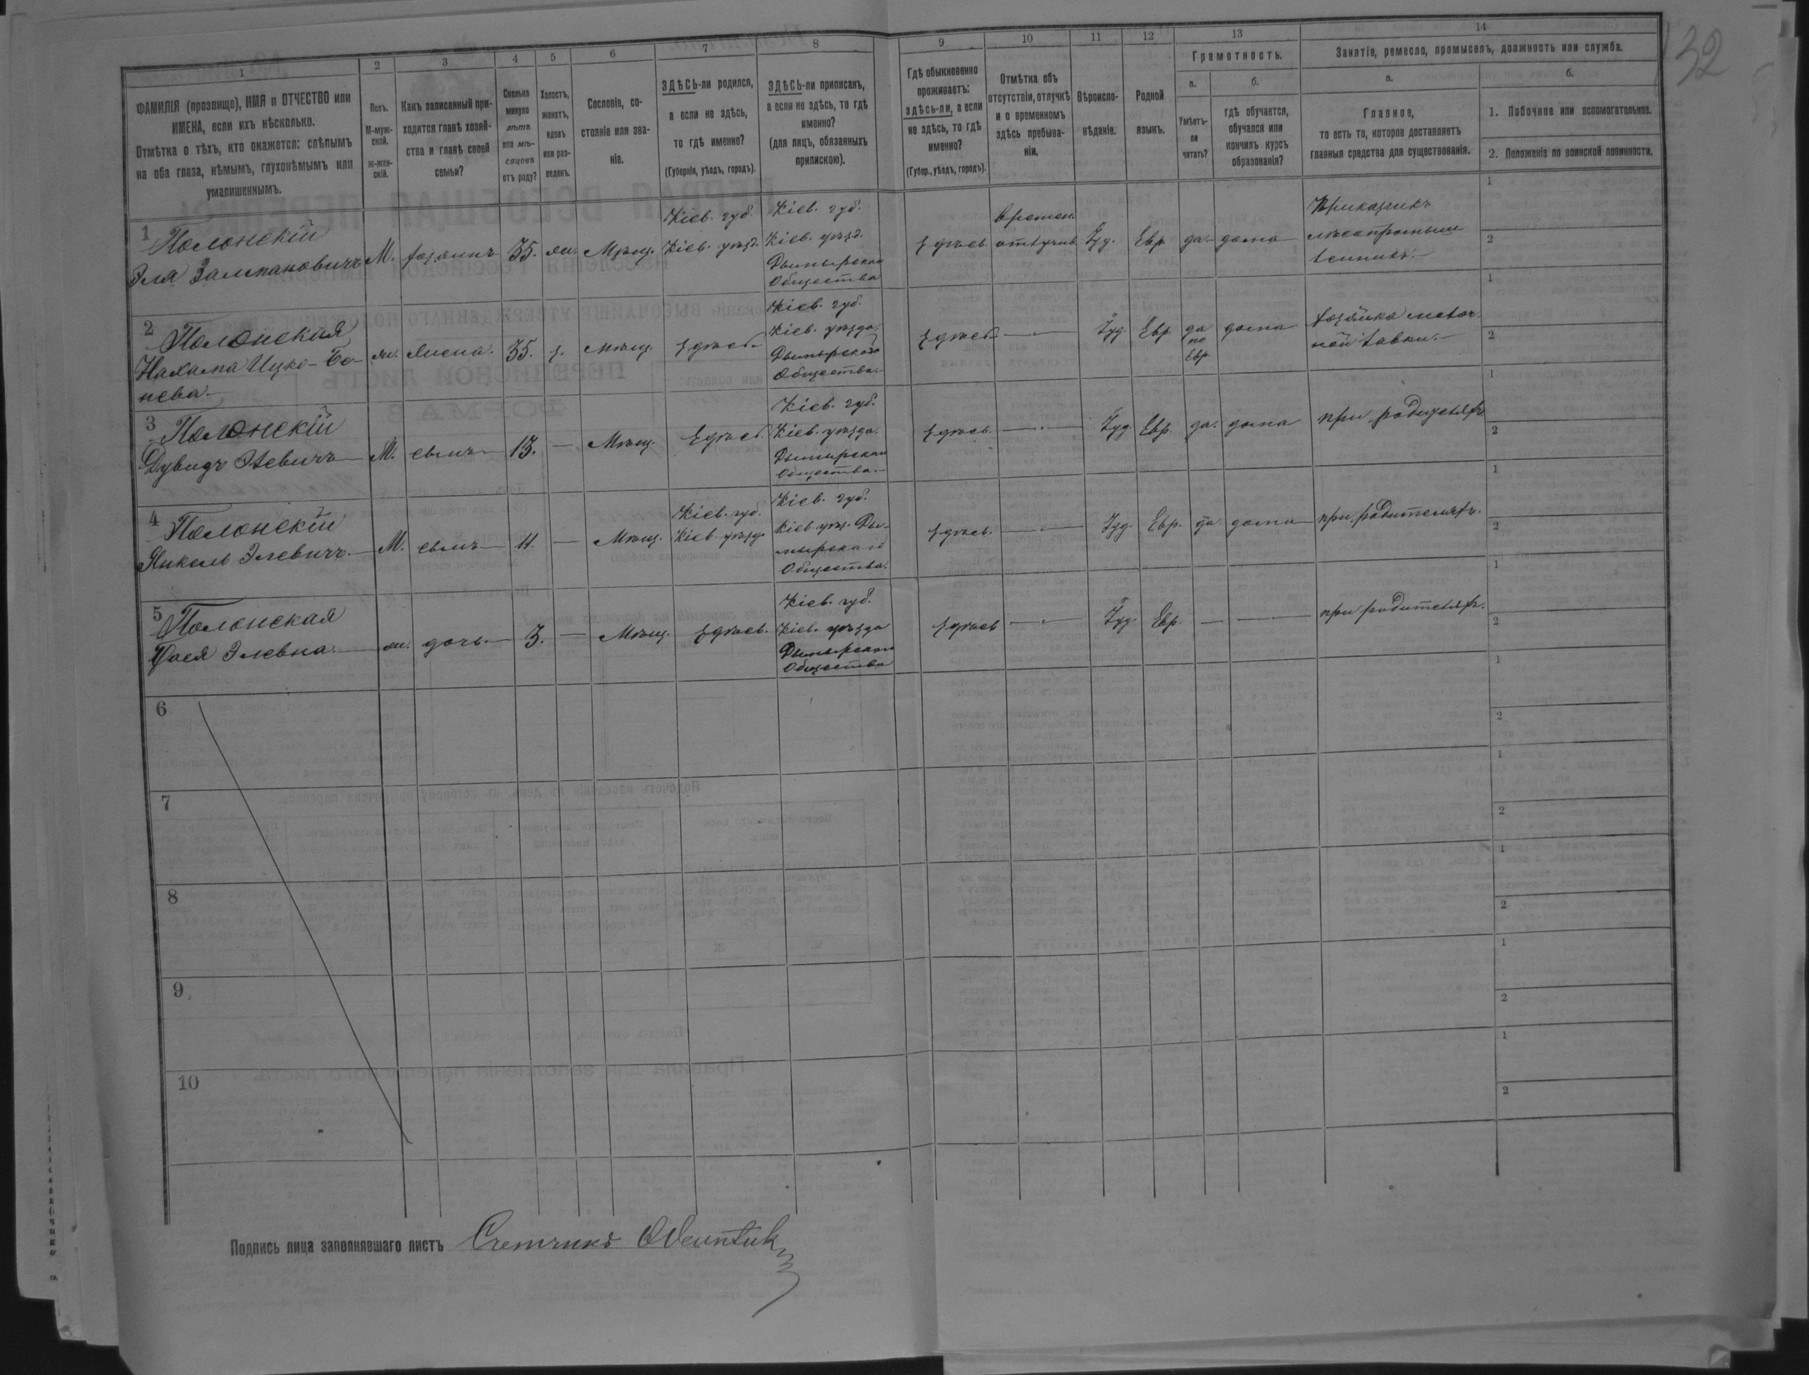 132
1 2 3 4 5 6 7 8 9 10 11 12 13 14
ФАМИЛІЯ (прозвище), ИМЯ и ОТЧЕСТВО или
ИМЕНА, если ихъ нѣсколько.
Отмѣтка о тѣхъ, кто окажется: слѣпымъ
на оба глаза, нѣмымъ, глухонѣмымъ или
умалишеннымъ.
Полъ.
М-муж-
ской.
Ж-жен-
скій.
Какъ записанный при-
ходится главѣ хозяй-
ства и главѣ своей
семьи?
Сколько
минуло
лѣтъ
или мѣ-
сяцевъ
отъ роду?
Холостъ,
женатъ,
вдовъ
или раз-
веденъ.
Сословіе, со-
стояніе или зва-
ніе.
ЗДѢСЬ-ли родился,
а если не здѣсь,
то гдѣ именно?
(Губернія, уѣздъ, городъ).
ЗДѢСЬ-ли приписанъ,
а если не здѣсь, то гдѣ
именно?
(для лицъ, обязанныхъ
припискою).
Гдѣ обыкновенно
проживаетъ:
здѣсь-ли, а если
не здѣсь, то гдѣ
именно?
(Губер., уѣздъ, городъ).
Отмѣтка объ
отсутствіи, отлучкѣ
и о временномъ
здѣсь пребыва-
ніи.
Вѣроиспо-
вѣданіе.
Родной
языкъ.
Грамотность.
а.
Умѣетъ-
ли
читать?
б.
гдѣ обучается,
обучался или
кончилъ курсъ
образованія?
Занятіе, ремесло, промыселъ, должность или служба.
а.
Главное,
то есть то, которое доставляетъ
главныя средства для существованія.
б.
1. Побочное или вспомогательное.
2. Положеніе по воинской повинности.
1
Полонскій
Эля Залмановичъ
М. хозяинъ 35. жи. Мѣщ.
Кіев. губ.
Кіев. уѣзд.
Кіев. губ.
Кіев. уѣзд.
Дымырскаго
Общества
здѣсь
времен.
отлучив.
Іуд. Евр. да дома
Приказчикъ
лѣсопромыш
ленника.
1
2
2
Полонская
Нахама Ицко-Бо-
нева.
жи. жена. 35. з. мѣщ. здѣсь
Кіев. губ.
Кіев. уѣзда
Дымырскаго
Общества.
здѣсь Іуд. Евр.
да
по
Евр.
дома
хозяйка мелоч
ной лавки.
1
2
3
Полонскій
Дувидъ Элевичъ
М. сынъ 13. Мѣщ. здѣсь
Кіев. губ.
Кіев. уѣзда.
Дымырскаго
Общества.
здѣсь Іуд. Евр. да. дома при родителяхъ
1
2
4
Полонскій
Янкель Элевичъ
М. сынъ 11. Мѣщ.
Кіев. губ.
Кіев. уѣзд.
Кіев. губ.
Кіев. уѣз. Ды-
мырскаго
Общества.
здѣсь Іуд. Евр. да дома при родителяхъ.
1
2
5
Полонская
Элевна
жи. дочь. 3. Мѣщ. здѣсь.
Кіев. губ.
Кіев. уѣзда
Дымырскаго
Общества
здѣсь Іуд. Евр. при родителях.
1
2
6
1
2
7
1
2
8
1
2
9
1
2
10
1
2
Подпись лица заполнявшаго листъ Счетчикъ